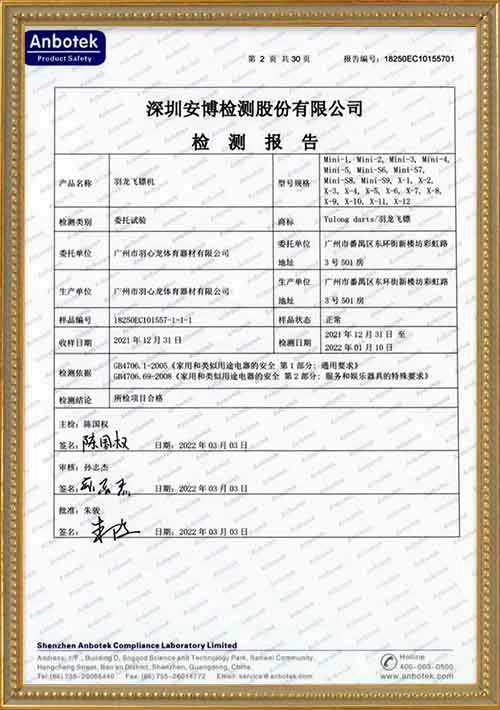 Anbotek
Product Safety
第 2 页 共 30 页
报告编号: 18250EC10155701
深圳安博检测股份有限公司
检 测 报 告
产品名称
羽龙飞镖机
型号规格
Mini-1, Mini-2, Mini-3, Mini-4,
Mini-5, Mini-S6, Mini-S7,
Mini-S8, Mini-S9, X-1, X-2,
X-3, X-4, X-5, X-6, X-7, X-8,
X-9, X-10, X-11, X-12
检测类别
委托试验
商标
Yulong darts/羽龙飞镖
委托单位
广州市羽心龙体育器材有限公司
委托单位
地址
广州市番禺区东环街新楼坊彩虹路
3 号 501 房
生产单位
广州市羽心龙体育器材有限公司
生产单位
地址
广州市番禺区东环街新楼坊彩虹路
3 号 501 房
样品编号
18250EC101557-1-1-1
样品状态
正常
收样日期
2021 年 12 月 31 日
检测日期
2021 年 12 月 31 日 至
2022 年 01 月 10 日
检测依据
GB4706.1-2005《家用和类似用途电器的安全 第 1 部分: 通用要求》
GB4706.69-2008《家用和类似用途电器的安全 第 2 部分: 服务和娱乐器具的特殊要求》
检测结论
所检项目合格
主检: 陈国权
签名: 陈国权 日期: 2022 年 03 月 03 日
审核: 孙志杰
签名: 日期: 2022 年 03 月 03 日
批准: 朱俊
签名: 日期: 2022 年 03 月 03 日
Shenzhen Anbotek Compliance Laboratory Limited
Address: 1/F., Building D, Sogood Science and Technology Park, Sanwei Community,
Hangcheng Street, Bao'an District, Shenzhen, Guangdong, China.
Tel:(86)755-26066440 Fax:(86)755-26014772 Email:service@anbotek.com
Hotline
400-003-0500
www.anbotek.com